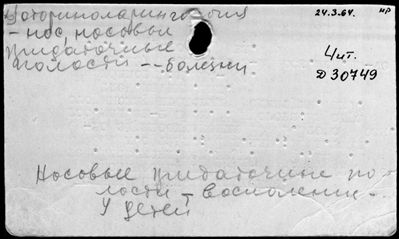 Оториноларингология
24.3.64. нр
- нос, носовые
придаточные
полости -- болезни
Чит.
Д 30749
Носовые придаточные по-
лости - воспаление -
у детей